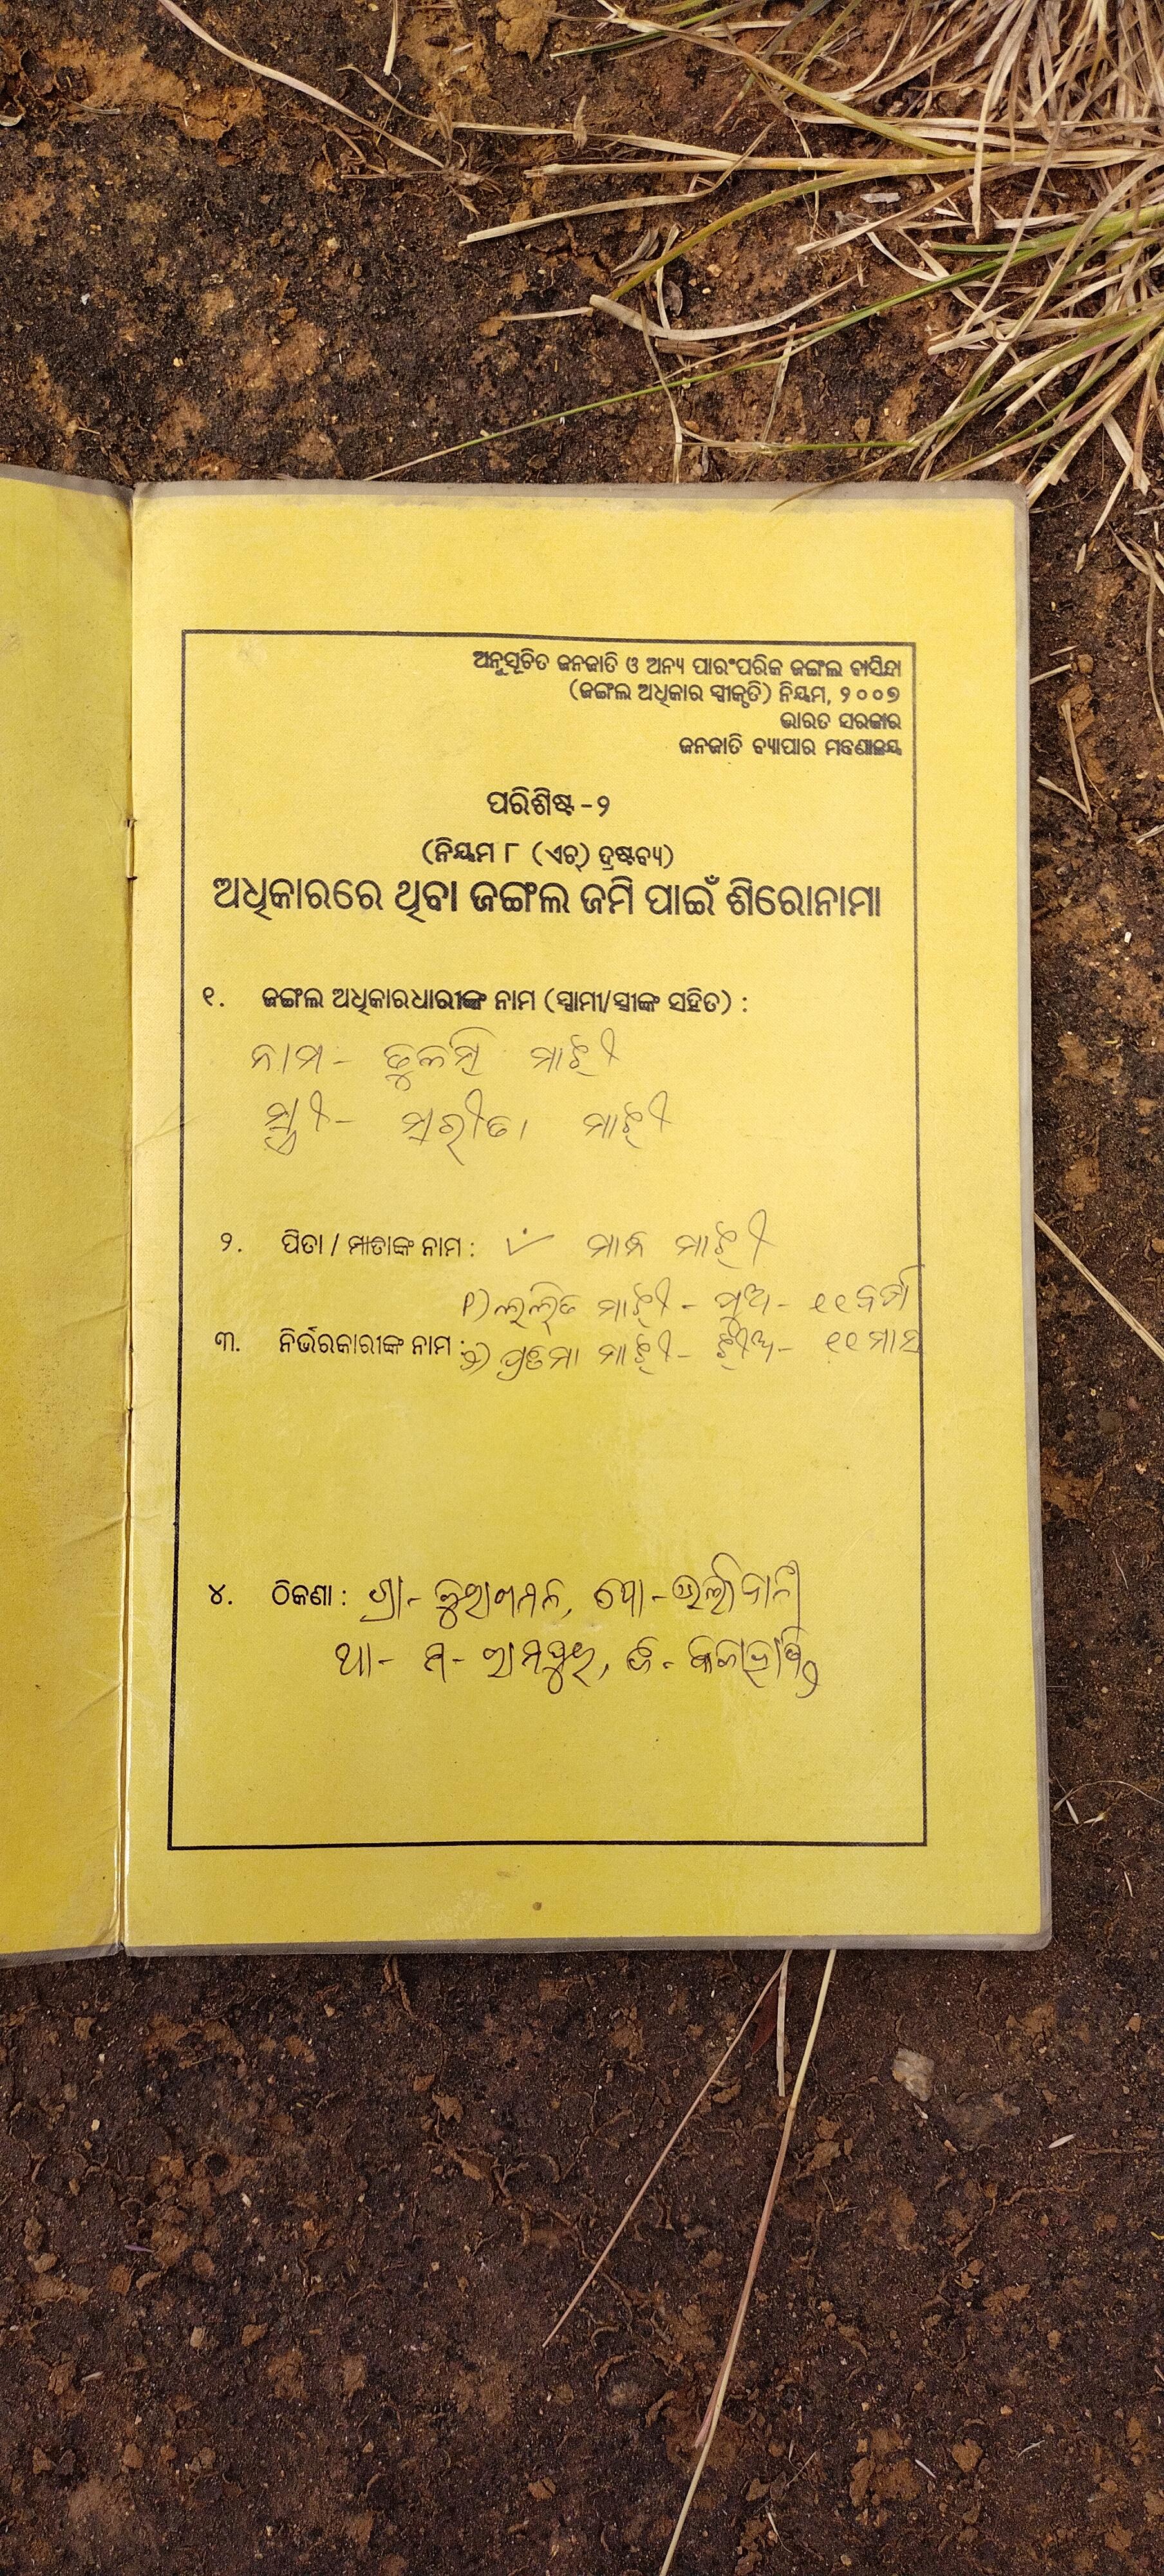 ଅନୁସୂଚିତ ଜନଜାତି ଓ ଅନ୍ୟ ପାରଂପରିକ ଜଙ୍ଗଲ ବାସିନ୍ଦା
(ଜଙ୍ଗଲ ଅଧିକାର ସ୍ୱୀକୃତି) ନିୟମ, ୨୦୦୭
ଭାରତ ସରକାର
ଜନଜାତି ବ୍ୟାପାର ମନ୍ତ୍ରଣାଳୟ
ପରିଶିଷ୍ଟ-୨
(ନିୟମ ୮ (ଏଚ୍) ଦ୍ରଷ୍ଟବ୍ୟ)
ଅଧିକାରରେ ଥିବା ଜଙ୍ଗଲ ଜମି ପାଇଁ ଶିରୋନାମା
୧. ଜଙ୍ଗଲ ଅଧିକାରଧାରୀଙ୍କ ନାମ (ସ୍ୱାମୀ/ସ୍ତ୍ରୀଙ୍କ ସହିତ) :
ନାମ - ମାଝୀ
ସ୍ତ୍ରୀ - ମାଝୀ
୨. ପିତା / ମାତାଙ୍କ ନାମ : ମାଝୀ
୧) ଲଳିତ ମାଝୀ - ପୁଅ - ୧୧ ବର୍ଷ
୩. ନିର୍ଭରକାରୀଙ୍କ ନାମ : ୨) ମାଝୀ - ଝୀଅ - ୧୧ ମାସ
୪. ଠିକଣା : ଗ୍ରା - ପୋ -
ଥା - ମ - ରାମପୁର, ଜି - କଳାହାଣ୍ଡି